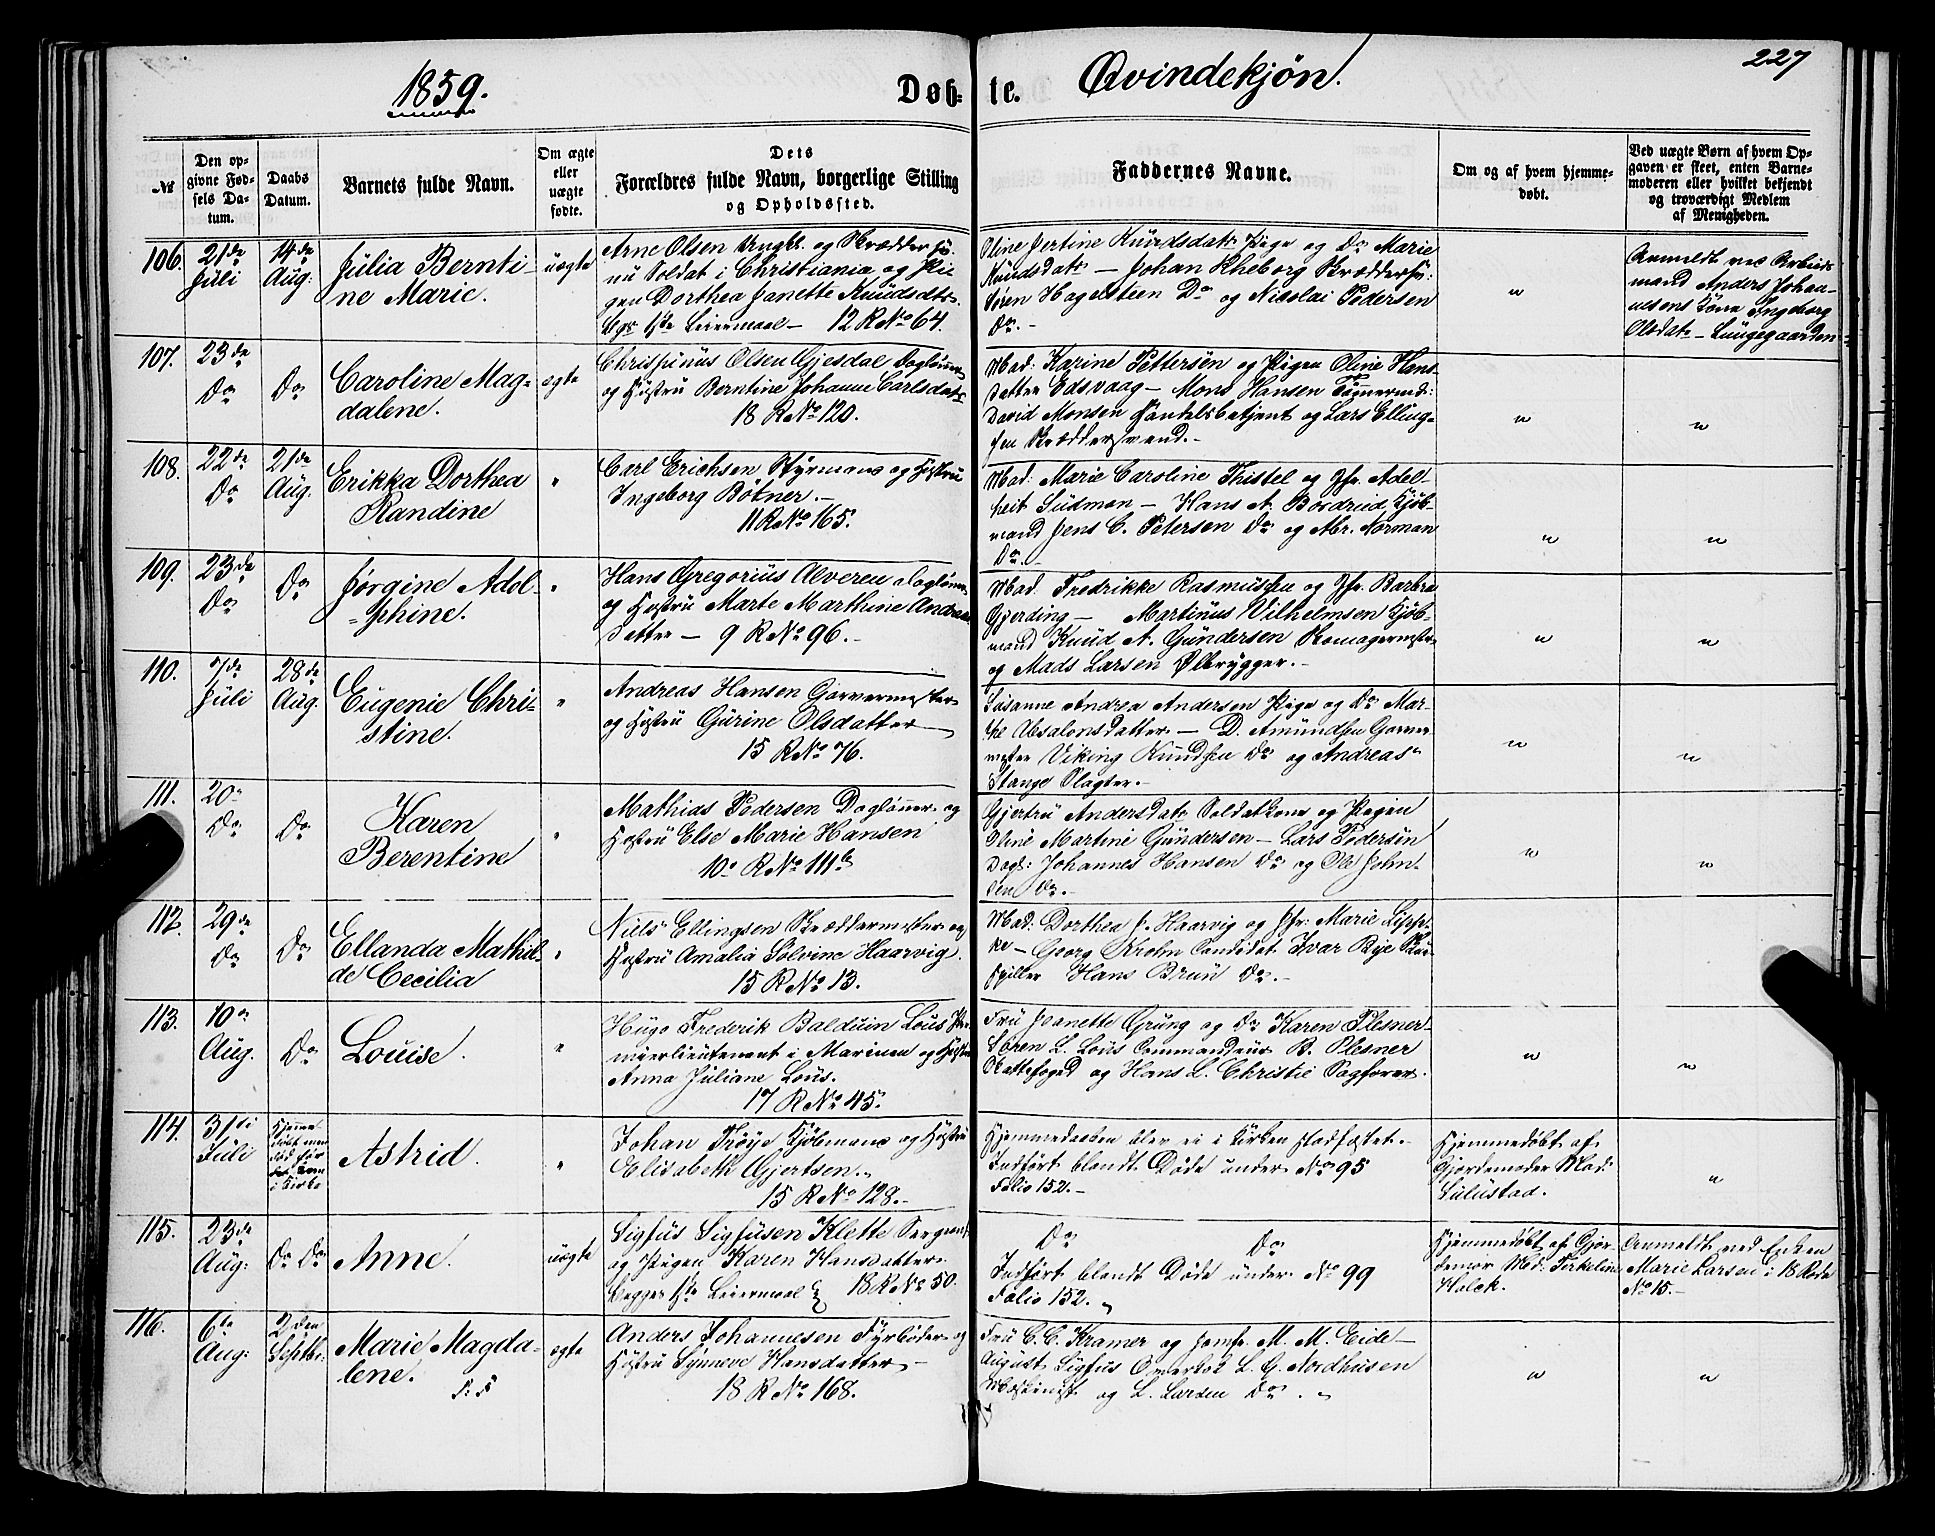 227
1859.
Døb-
te.
Qvindekjøn.
№
Den op-
givne Fød-
sels Da-
tum.
Daabs
Datum.
Barnets fulde Navn.
Om ægte
eller
uægte
fødte.
Dets
Forældres fulde Navn, borgerlige Stilling
og Opholdssted.
Faddernes Navne.
Om og af hvem hjemme-
døbt.
Ved uægte Børn af hvem Op-
gaven er skeet, enten Barne-
moderen eller hvilket bekjendt
og troværdigt Medlem
af Menigheden.
106.
21de
Juli
14de
Aug:
Julia Bernti-
ne Marie.
uægte
Arne Olsen Ungk. og Skrædder
nu Soldat i Christiania og Pi-
gen Dorthea Janette Knudsdtr.
Bgs 1ste Leiermaal — 12 R No 64.
Oline Jertine Knudsdatr Pige og Do Marie
Knudsdatr — Johan Rheborg Skrædder
Søren Hagelsteen Do og Nicolai Pedersen
Do. —
"
Anmeldt ved Arbeids-
mand Anders Johan-
nesens Kone Ingeborg
Olsdatr — Lungegaarden
107.
23de
Do
Do
Caroline Mag-
dalene.
ægte
Chrispinus Olsen Gjesdal Daglønner
og Hustru Berntine Johanne Carlsdatr
18 R No 120.
Mad: Karine Pettersen og Pigen Oline Hans-
datter Edsvaag — Mons Hansen Tømmermd:
David Monsen Handelsbetjent og Lars Elling-
sen Skræddersvend. —
"
"
108.
22de
Do
21de
Aug.
Erikka Dorthea
Randine
"
Carl Erichsen Styrmand og Hustru
Ingeborg Bøtner. —
11 R No 165.
Mad: Marie Caroline Thistel og Jfr. Adel-
heit Sudman — Hans A. Bordrud Kjøb-
mand Jens C. Petersen Do og Abr. Norman
Do. —
"
"
109.
23de
Do
Do
Jørgine Adol-
phine.
"
Hans Gregorius Alveren Dagløner
og Hustru Marte Marthine Andreas-
datter — 9 R No 96. —
Mad. Fredrikke Rasmussen og Jfr. Barbra
Gjerding — Martinus Vilhelmsen Kjøb-
mand Knud A. Gundersen Skomagermester
og Mads Larsen Ølbrygger. —
"
"
110.
7de
Juli
28de
Aug.
Eugenie Chri-
stine.
"
Andreas Hansen Garvermester
og Hustru Gurine Olsdatter
15 R No 76.
Susanne Andrea Andersen Pige og Do Mar-
the Absalonsdatter — D. Amundsen Garver-
mester Viking Knudsen Do og Andreas
Stange Slagter. —
"
"
111.
20de
Do
Do
Karen
Berentine
"
Mathias Pedersen Dagløner og
Hustru Else Marie Hansen
10. R No 111b
Gjertru Andersdatr Soldatkone og Pigen
Oline Martine Gundersen — Lars Pedersen
Dagl: Johannes Hansen Do og Ole John-
sen Do. —
"
"
112.
29de
Do
Do
Ellanda Mathil-
de Cecilia
"
Niels Ellingsen Skræddermester og
Hustru Amalia Solvine Haarvig.
15 R No 13.
Mad: Dorthea J. Haarvig og Jfr: Marie Lippe-
— Georg Krohn Candidat Ivar Bye Skue-
spiller Hans Brun Do. —
113.
10de
Aug.
Do
Louise.
"
Hugo Frederik Balduin Lous Pre-
mierlieutenant i Marinen og Hustru
Anna Juliane Lous.
17 R No 45.
Fru Jeanette Grung og Do Karen Plesner
Søren L. Lous Commandeur B. Plesner
Rattefoged og Hans L. Christie Sagfører.
"
"
114.
31te
Juli
Hjemme-
døbt men
død før
i Kirke
Astrid.
"
Johan Trøye Kjøbmand og Hustru
Elisabeth Gjertsen.
15 R No 128. —
Hjemmedaaben blev ei i Kirken stadfæstet. —
Indført blandt Døde under No 95
Folio 152. —
Hjemmedøbt af
Gjordemoder Mad:
Sulustad.
"
115.
23de
Aug:
Do Do
Anne.
uægte
Sigfus Sigfusen Klette Sergeant
og Pigen Karen Hansdatter.
Begges 1ste Leiermaal 18 R No 50.
Do Do
Indført blandt Døde under No 99
Folio 152.
Hjemmedøbt af Gjor-
demor Md: Terkeline
Holck.
Anmeldt ved Enken
Marie Larsen i 18 Rode
No 15. —
116.
6te
Aug:
2den
Septbr.
Marie Magda-
lene.
ægte
Anders Johannesen Fyrbøder og
Hustru Synneve Hansdatter —
18 R No 168.
Fru C. C. Kramer og Jomfr. M. M. Eide —
August Sigfus Overkok L. G. Nordhusen
Maskinist og L. Larsen Do.
"
"